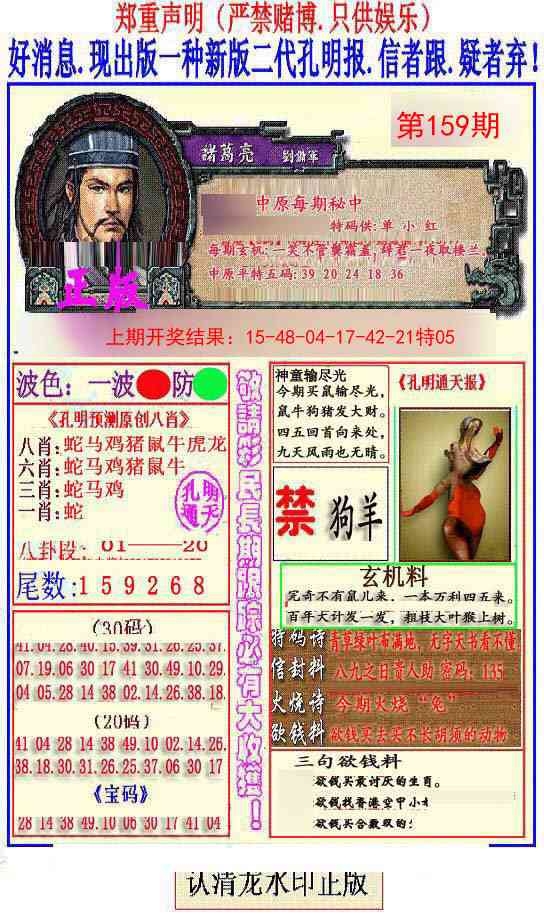 郑重声明（严禁赌博.只供娱乐）
好消息.现出版一种新版二代孔明报.信者跟.疑者弃!
第159期
諸葛亮 劉備軍
中原每期秘中
特码供:单 小 红
每期玄机:一笑不管樊霜盖,辞君一夜取楼兰.
中原平特五码: 39 20 24 18 36
正版
上期开奖结果：15-48-04-17-42-21特05
波色：一波 防
《孔明预测原创八肖》
八肖:蛇马鸡猪鼠牛虎龙
六肖:蛇马鸡猪鼠牛
三肖:蛇马鸡
一肖:蛇
孔明
通天
八卦段: 01——20
尾数:159268
(30码)
41.04.28.40.15.39.31.26.25.37.
07.19.06 30 17 41 30.49.10.29.
04 05.28 14 38 02.14.26 38.18.
(20码)
41 04 28 14 38 49.10 02.14.26.
38.18.30.31.26 25.37.06 30 17
《宝码》
28 14 38 49.10 06 30 17 41 04
敬請彩民長期跟踪必有大收獲！
神童输尽光
今期买鼠输尽光,
鼠牛狗猪发大财。
四五回首向来处,
九天风雨也无晴。
《孔明通天报》
禁 狗羊
玄机料
冗奇不有鼠儿来，一本万利四五来。
百年大计发一发，粗枝大叶猴上树。
特码诗 青草绿叶布满地，无字天书看不懂
信封料 八九之日贵人助 密码：135
火烧诗 今期火烧“兔”
欲钱料 欲钱买去买不长胡须的动物
三句欲钱料
欲钱买最讨厌的生肖。
欲钱找香港空甲小
欲钱买合数双的:
认清龙水印正版